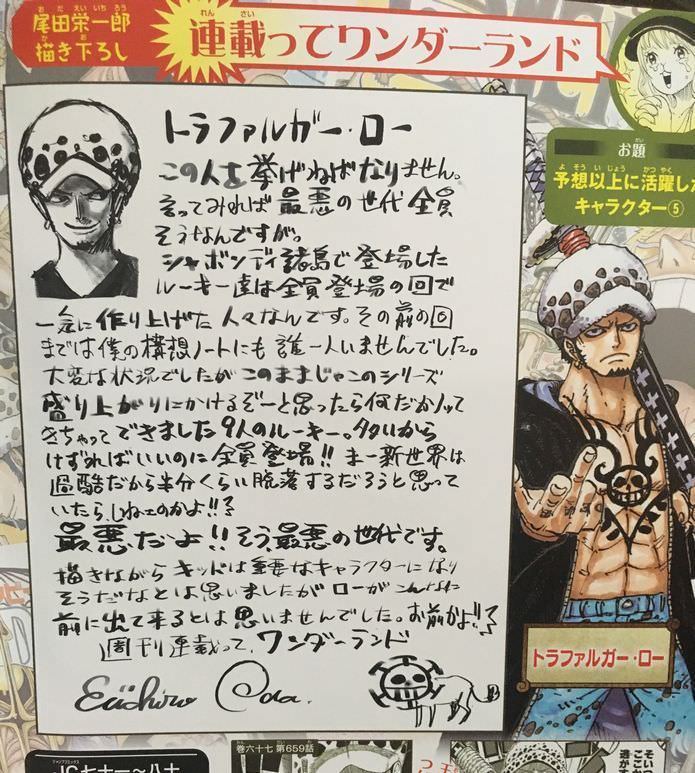 尾田栄一郎
描き下ろし
連載ってワンダーランド
お題
予想以上に活躍し
キャラクター⑤
トラファルガー・ロー
この人を挙げねばなりません。
言ってみれば最悪の世代全員
そうなんですが。
シャボンディ諸島で登場した
ルーキー達は全員登場の回で
一気に作り上げた人々なんです。その前の回
までは僕の構想ノートにも誰一人いませんでした。
大変な状況でしたがこのままじゃこのシリーズ
盛り上がりにかけるぞーと思ったら何だかノッて
きちゃってできました9人のルーキー。多いから
けずればいいのに全員登場!! まー新世界は
過酷だから半分くらい脱落するだろうと思って
いたら、しねェのかよ!!
最悪だよ!!そう、最悪の世代です。
描きながらキッドは重要なキャラクターになり
そうだなとは思いましたがローがこんなに
前に出て来るとは思いませんでした。お前かよ!!
週刊連載って、ワンダーランド
Eiichiro Oda.
トラファルガー・ロー
巻六十七 第659話
JC七十一〜八十